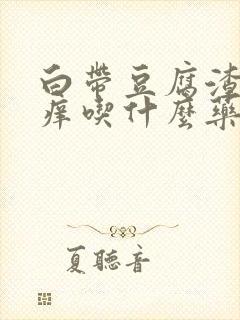 白帶豆腐渣
痒喫什麼藥
夏聽音